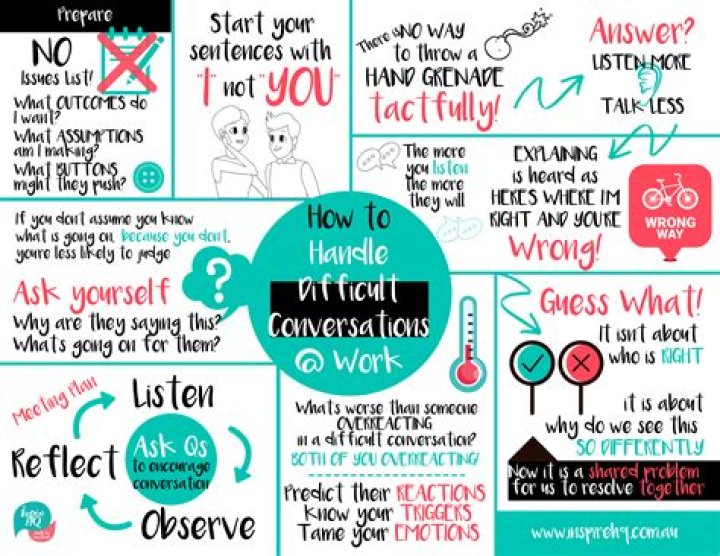 Prepare
NO
Issues List!
What OUTCOMES do
I want?
What ASSUMPTIONS
am I making?
What BUTTONS
might they push?
Start your
sentences with
"I" not "YOU"
There is NO WAY
to throw a
HAND GRENADE
tactfully!
Answer?
LISTEN MORE
TALK LESS
The more
you listen
the more
they will
EXPLAINING
is heard as
HERES WHERE I'M
RIGHT AND YOU'RE
Wrong!
WRONG
WAY
If you don't assume you know
what is going on, because you don't,
you're less likely to judge
Ask yourself
Why are they saying this?
What's going on for them?
?
How to
Handle
Difficult
Conversations
@ Work
Guess What!
It isn't about
who is RIGHT
it is about
why do we see this
SO DIFFERENTLY
Now it is a shared problem
for us to resolve together
www.inspirehq.com.au
Meeting Plan
Listen
Reflect
Ask Qs
to encourage
conversation
Observe
Inspire
HQ
What's worse than someone
OVERREACTING
in a difficult conversation?
BOTH OF YOU OVERREACTING!
Predict their REACTIONS
Know your TRIGGERS
Tame your EMOTIONS